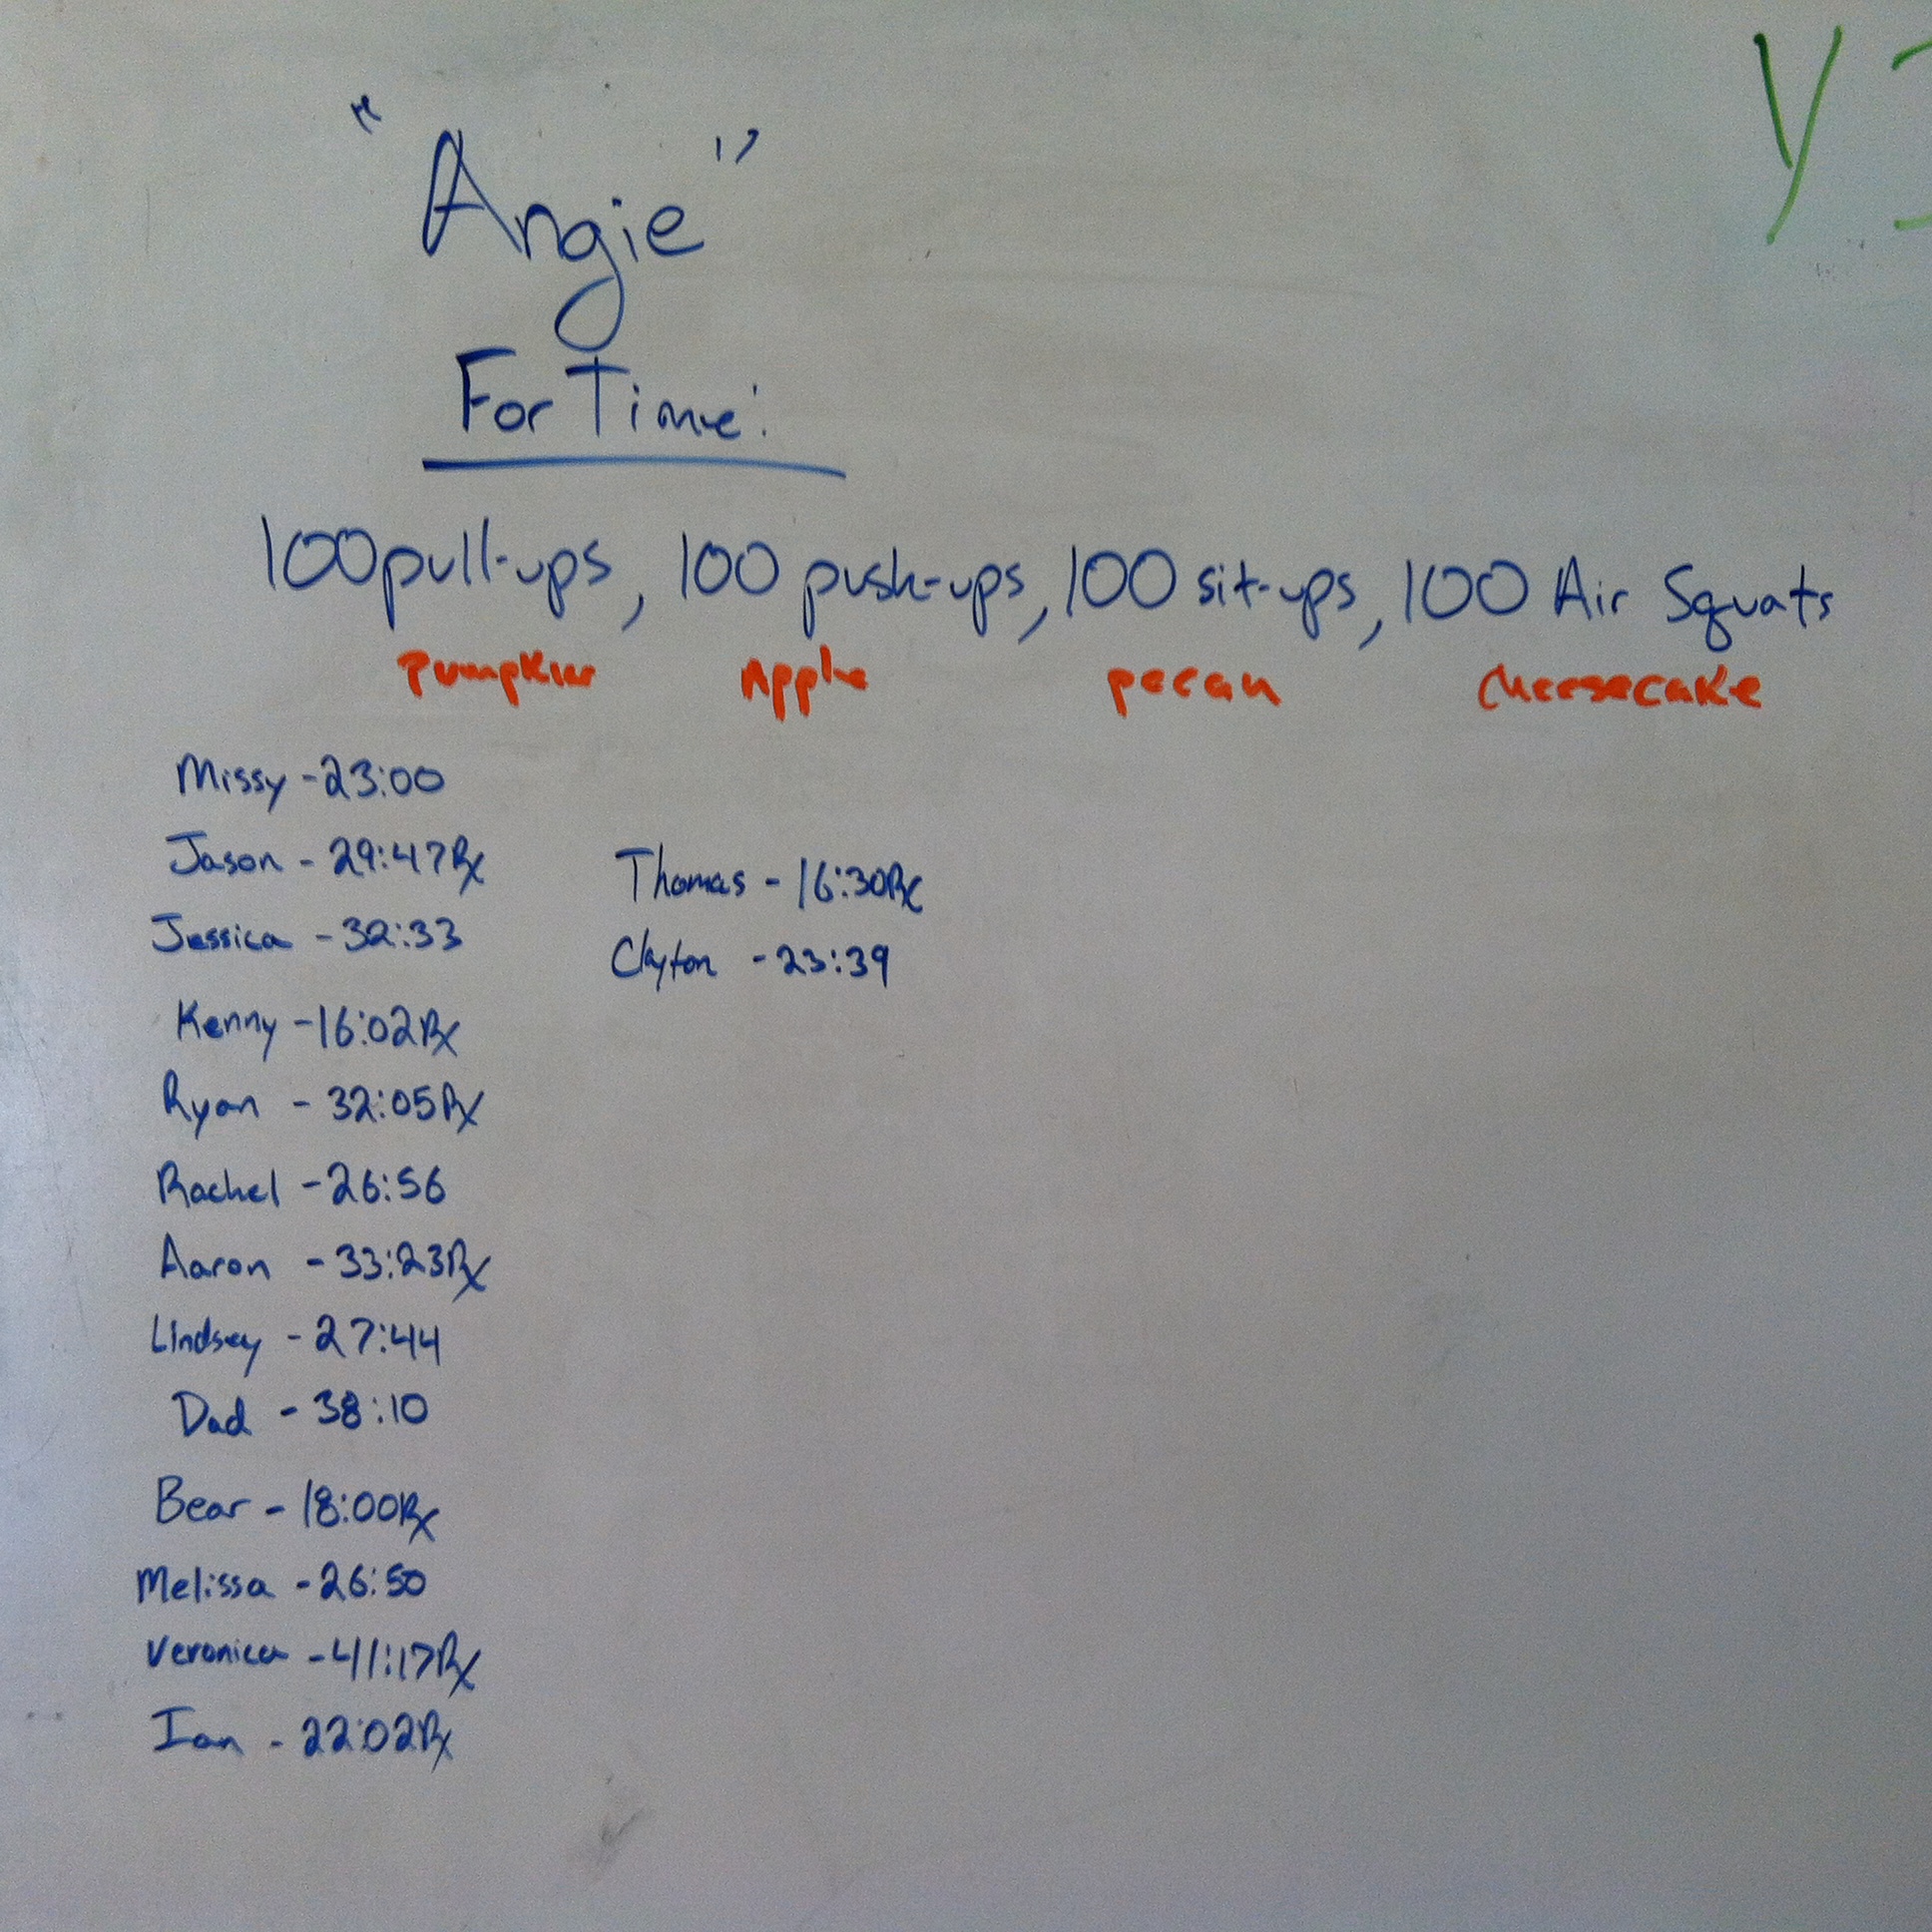 "Angie"
For Time:
100 pull-ups, 100 push-ups, 100 sit-ups, 100 Air Squats
Pumpkin Apple pecan Cheesecake
Missy - 23:00
Jason - 29:47 Rx
Thomas - 16:30 Rx
Jessica - 32:33
Clayton - 23:39
Kenny - 16:02 Rx
Ryan - 32:05 Rx
Rachel - 26:56
Aaron - 33:23 Rx
Lindsey - 27:44
Dad - 38:10
Bear - 18:00 Rx
Melissa - 26:50
Veronica - 41:17 Rx
Ian - 22:02 Rx